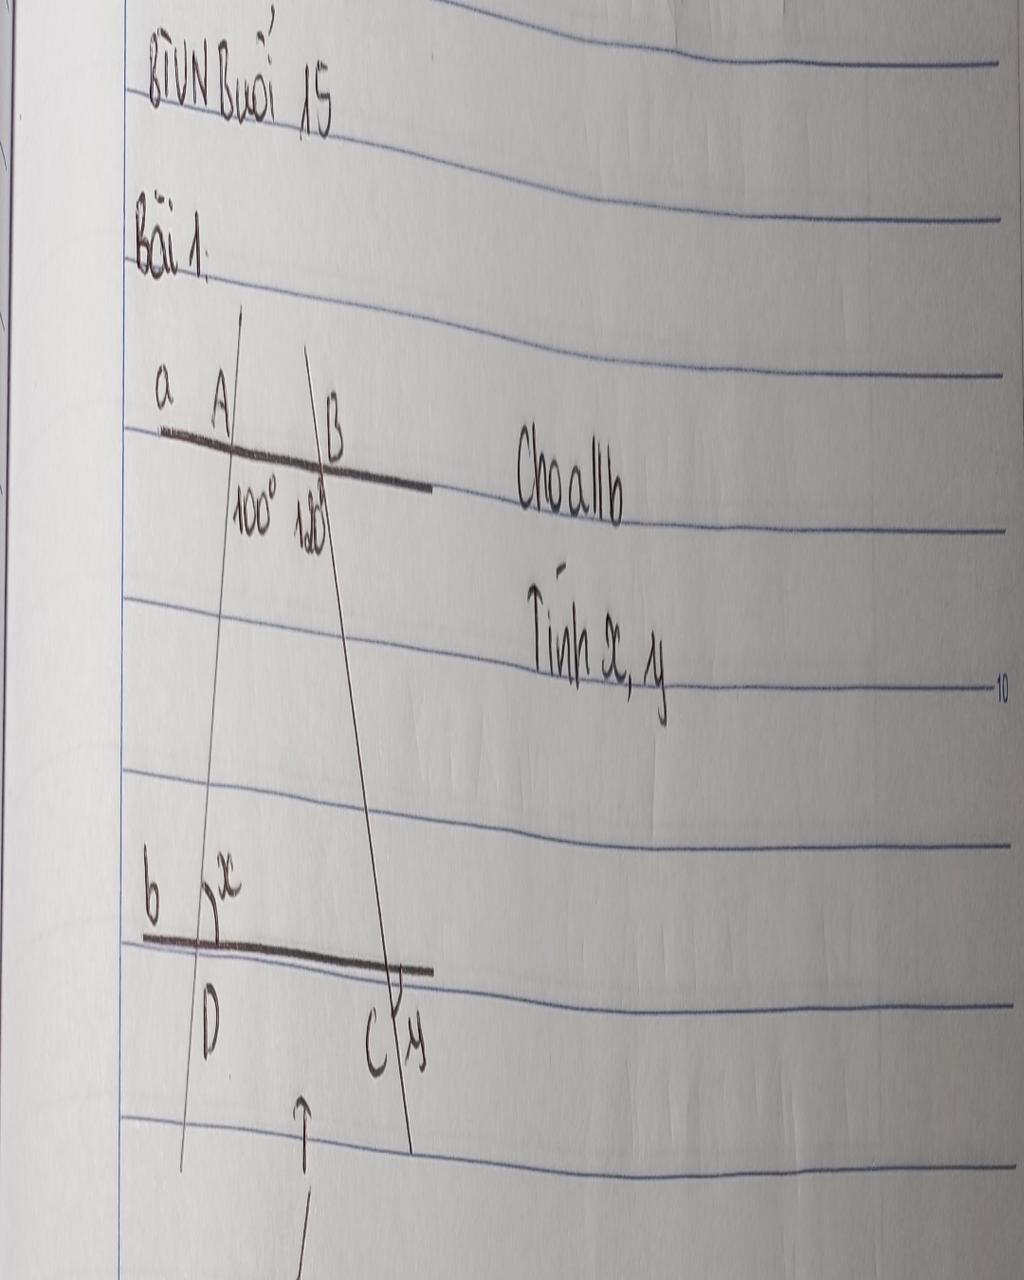 BTVN Buổi 15
Bài 1.
a A B
100° 120°
Cho a||b
Tính x, y
10
b x
D C y